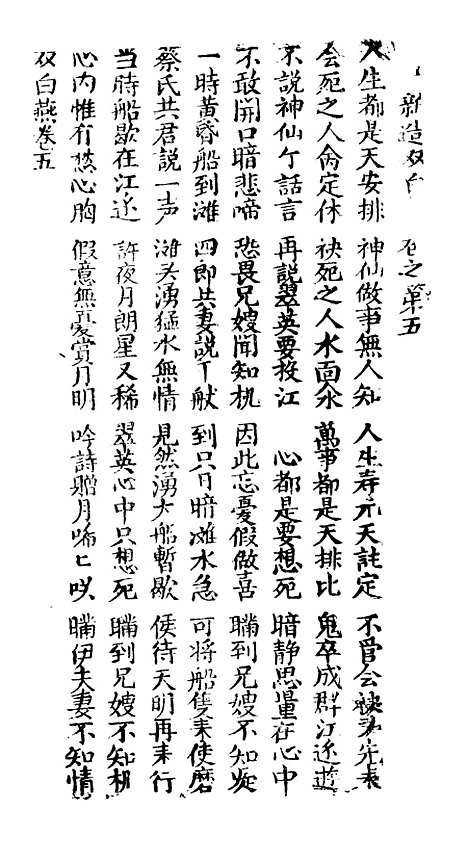 新造双白 卷之第五
人生都是天安排 神仙做事無人知 人生寿元天註定 不管公
会死之人侖定休 袂死之人水面氽 萬事都是天排比 鬼卒成群江迃遊
不說神仙个話言 再說翠英要投江 心都是要想死 暗静思量在心中
不敢開口暗悲啼 恐畏兄嫂聞知机 因此忘憂假做喜 瞞到兄嫂不知
一時黃昏船到灘 四郎共妻說丁献 到只日暗灘水急 可将船隻来使磨
蔡氏共君說一声 灘头湧猛水無情 見然湧大船暫歇 侯待天明再来行
当時船歇在江迃 許夜月朗星又稀 翠英心中只想死 瞞到兄嫂不知机
心内惟有愁心胸 假意無憂賞月明 吟詩贈月唏匕 瞞伊夫妻不知情
双白燕卷五